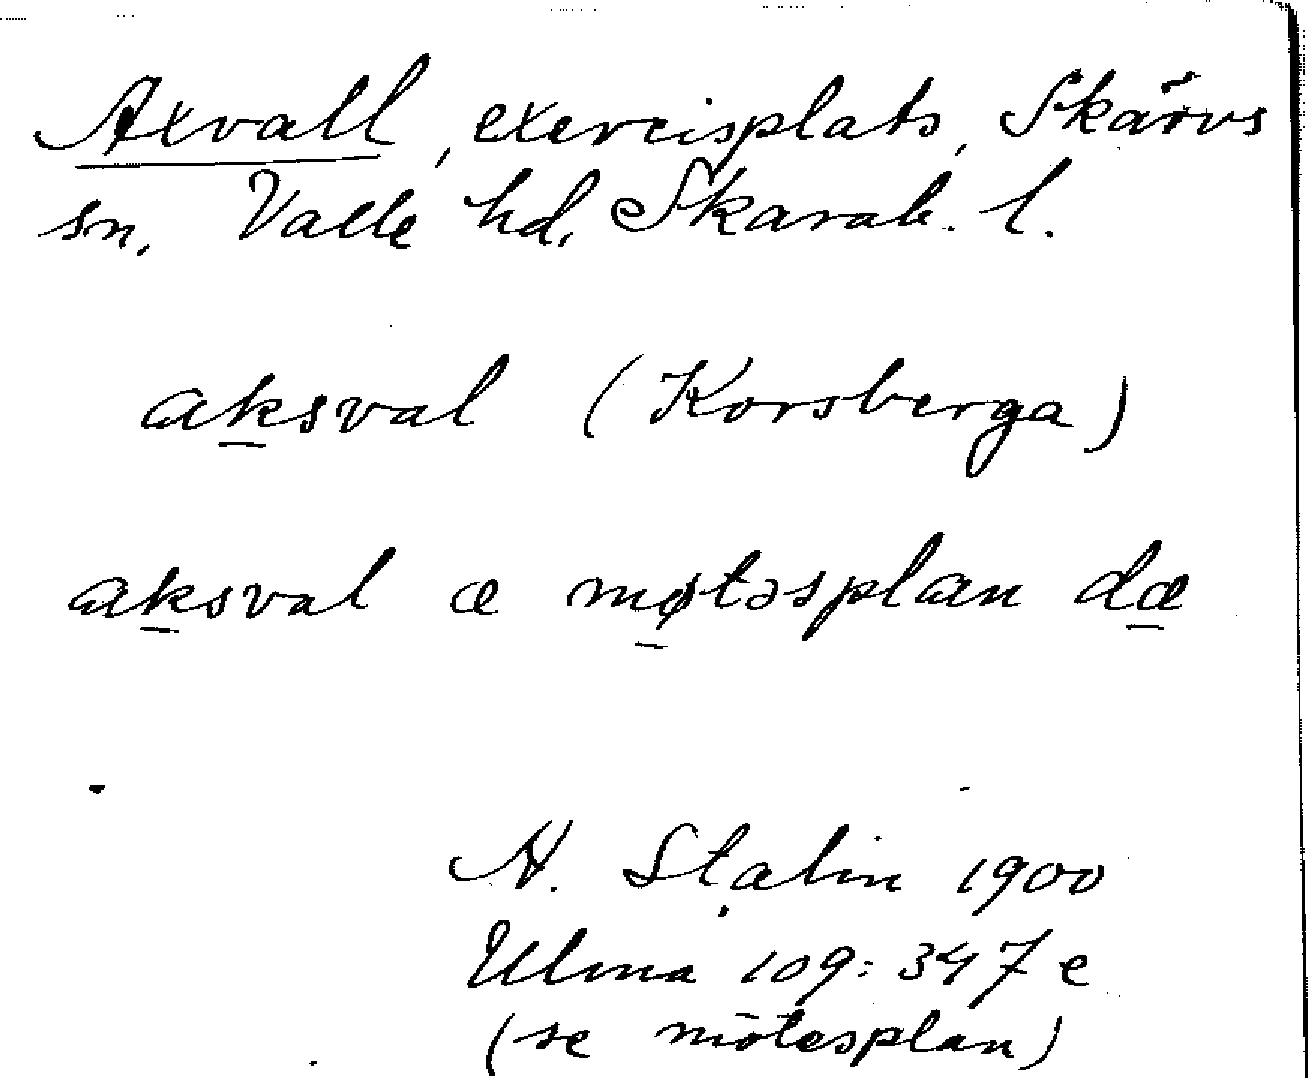 Axvall, exercisplats, Skärvs
sn, Valle hd, Skarab. l.
aksval (Korsberga)
aksval æ møtəsplan dæ
N. Stalin 1900
Ulma 109:347 e
(se mötesplan)